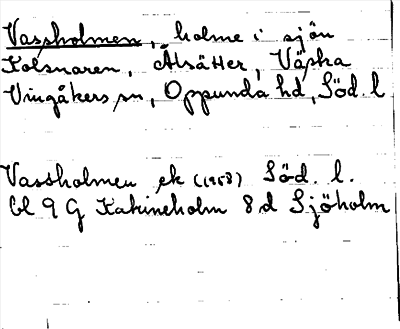 Vassholmen, holme i sjön
Kolsnaren, Ålsätter, Västra
Vingåkers sn, Oppunda hd, Söd. l
Vassholmen ek (1958) Söd. l.
bl 9 G Katrineholm 8 d Sjöholm